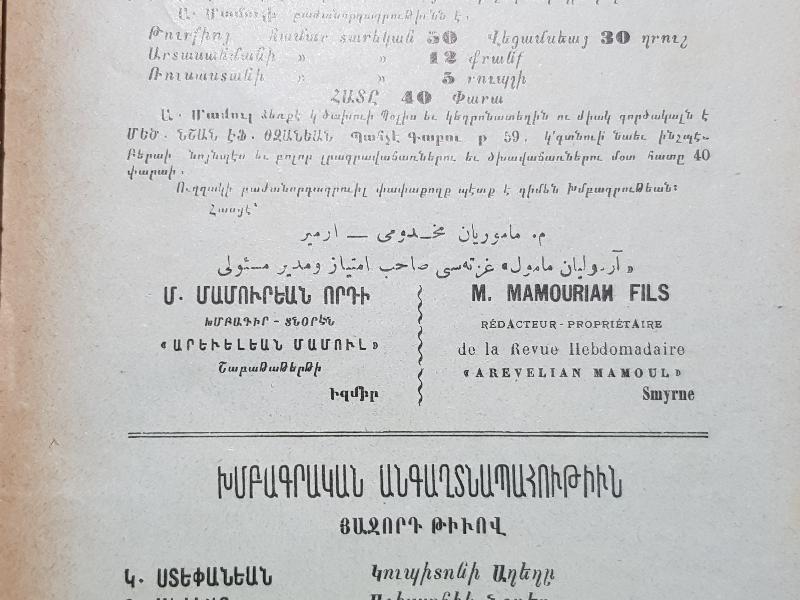 Ա. Մամուլի բաժանորդագրութիւնն է.
Թուրքիոյ համար տարեկան 50 Վեցամսեայ 30 ղրուշ
Արտասահմանի » » 12 ֆրանք
Ռուսաստանի » » 5 րուպլի
ՀԱՏԸ 40 Փարա
Ա. Մամուլ ձեռքէ կ'ծախուի Պօլիս եւ կեդրոնատեղին ու միակ գործակալն է
ՄԵՍ. ՆՇԱՆ ԷՖ. ՕԶԱՆԵԱՆ Պահչէ Գարու թ 59. կ'գտնուի նաեւ ինչպէ-
Բերաի նոյնպէս եւ բոլոր լրագրավաճառներու եւ ծխավաճառներու մօտ հատը 40
փարաի.
Ուղղակի բաժանորդագրուիլ փափաքողք պէտք է դիմեն Խմբագրութեան:
Հասցէ՝
م. ماموریان مخدومی — ازمیر
«آره‌ولیان مامول» غزته‌سی صاحب امتیاز ومدیر مسئولی
Մ. ՄԱՄՈՒՐԵԱՆ ՈՐԴԻ
ԽՄԲԱԳԻՐ - ՏՆՕՐԷՆ
«ԱՐԵՒԵԼԵԱՆ ՄԱՄՈՒԼ»
Շաբաթաթերթի
Իզմիր
M. MAMOURIAN FILS
RÉDACTEUR-PROPRIÉTAIRE
de la Revue Hebdomadaire
«AREVELIAN MAMOUL»
Smyrne
ԽՄԲԱԳՐԱԿԱՆ ԱՆԳԱՂՏՆԱՊԱՀՈՒԹԻՒՆ
ՅԱՋՈՐԴ ԹԻՒՈՎ
Կ. ՍՏԵՓԱՆԵԱՆ Կուպիտոնի Աղեղը